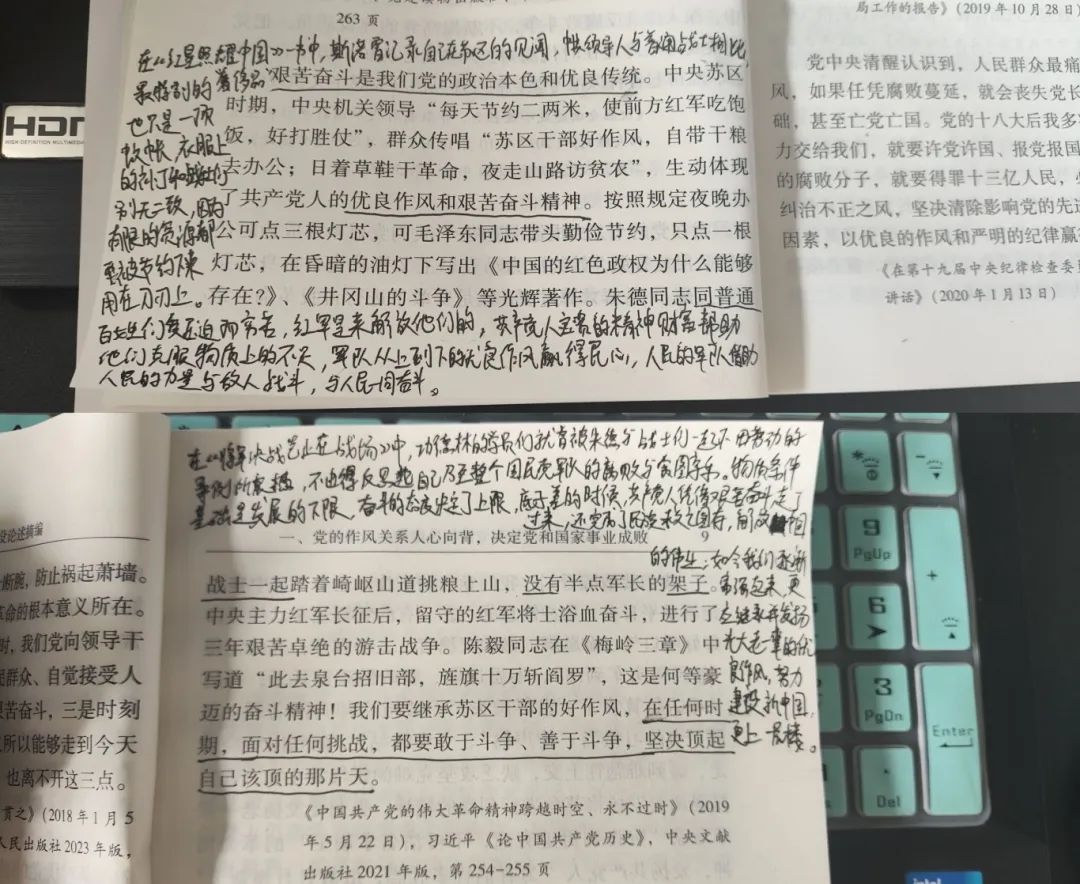 263 页
局工作的报告》(2019 年 10 月 28 日)
在《红星照耀中国》一书中,斯诺曾记录自己在苏区的见闻,
最特别的奢侈品
也不是一顶
蚊帐,衣服上
的补丁
别无二致,
有限的资源都
用在刀刃上。
艰苦奋斗是我们党的政治本色和优良传统。中央苏区
时期,中央机关领导“每天节约二两米,使前方红军吃饱
饭,好打胜仗”,群众传唱“苏区干部好作风,自带干粮
去办公;日着草鞋干革命,夜走山路访贫农”,生动体现
了共产党人的优良作风和艰苦奋斗精神。按照规定夜晚办
公可点三根灯芯,可毛泽东同志带头勤俭节约,只点一根
灯芯,在昏暗的油灯下写出《中国的红色政权为什么能够
存在?》、《井冈山的斗争》等光辉著作。朱德同志同普通
红军是来解放他们的,共产党人宝贵的精神财富帮助
他们克服物质上的不足,军队从上到下的优良作风赢得民心,人民的军队借助
人民的力量与敌人战斗,与人民一同奋斗。
党中央清醒认识到,人民群众最痛
风,如果任凭腐败蔓延,就会丧失党长
础,甚至亡党亡国。党的十八大后我多
力交给我们,就要许党许国、报党报国
的腐败分子,就要得罪十三亿人民,
纠治不正之风,坚决清除影响党的先
因素,以优良的作风和严明的纪律赢
《在第十九届中央纪律检查委
讲话》(2020 年 1 月 13 日)
HIGH-DEFINITION MULTIMEDIA
在《将军决战岂止在战场》中,功德林的学员们就曾被朱德与战士们一起
不由得反思起自己乃至整个国民党军队的腐败与贪图享乐。物质条件
基础是发展的下限,奋斗的态度决定了上限,
过来,还完成了民族救亡图存,解放
的伟业,如今我们逐渐
富强起来,更
应继承并发扬
光大老一辈的优
良作风,努力
建设新中国
更上一层楼。
一、党的作风关系人心向背,决定党和国家事业成败 9
战士一起踏着崎岖山道挑粮上山,没有半点军长的架子。
中央主力红军长征后,留守的红军将士浴血奋斗,进行了
三年艰苦卓绝的游击战争。陈毅同志在《梅岭三章》中
写道“此去泉台招旧部,旌旗十万斩阎罗”,这是何等豪
迈的奋斗精神!我们要继承苏区干部的好作风,在任何时
期,面对任何挑战,都要敢于斗争、善于斗争,坚决顶起
自己该顶的那片天。
《中国共产党的伟大革命精神跨越时空、永不过时》(2019
年 5 月 22 日),习近平《论中国共产党历史》,中央文献
出版社 2021 年版,第 254-255 页
设论述摘编
断腕,防止祸起萧墙。
革命的根本意义所在。
时,我们党向领导干
民群众、自觉接受人
艰苦奋斗,三是时刻
所以能够走到今天
也离不开这三点。
贯之》(2018 年 1 月 5
人民出版社 2023 年版,
*
-
9
PgUp
+
6
3
PgDn
Enter
.
Del
intel